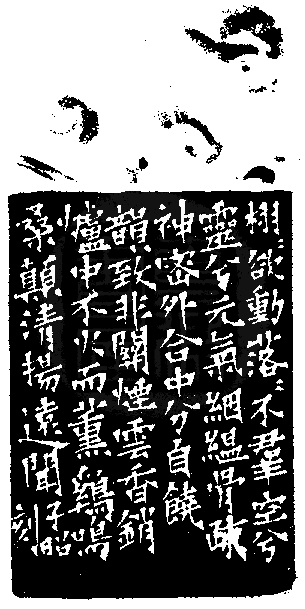 栩〻欲動落〻不羣空兮
靈兮元氣絪縕骨疎
神密外合中分自饒
韻致非關煙雲香銷
爐中不火而薰鷄鳴
桑顛清揚遠聞子昭
刻